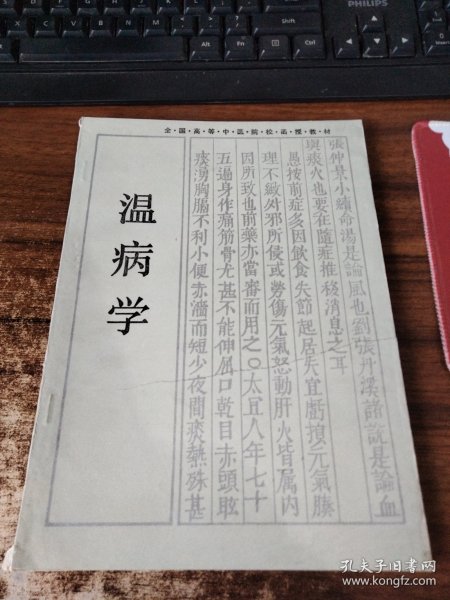 PHILIPS
Alt
Fn
Ctrl
Shift
End
全·国·高·等·中·医·院·校·函·授·教·材
温病学
張仲景小續命湯是論風也劉張丹溪諸說是論血
與痰火也要在隨症推移消息之耳
愚按前症多因飲食失節起居失宜虧損元氣腠
理不緻外邪所侵或勞傷元氣怒動肝火皆属内
因所致也前藥亦當審而用之○太宜人年七十
五遍身作痛筋骨尤甚不能伸屈口乾目赤頭眩
痰湧胸膈不利小便赤澀而短少夜間痰熱殊甚
孔夫子旧书网
www.kongfz.com